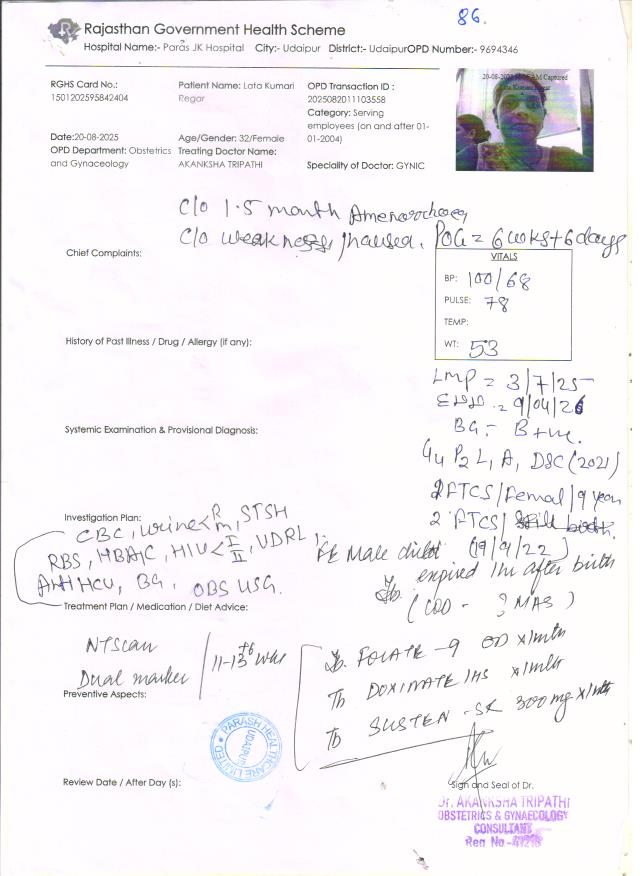 86.
Rajasthan Government Health Scheme
Hospital Name:- Paras JK Hospital City:- Udaipur District:- Udaipur OPD Number:- 9694346
RGHS Card No.: 150120259584​2404
Patient Name: Lata Kumari Regar
OPD Transaction ID : 2025082011103558
Category: Serving employees (on and after 01-01-2004)
Date:20-08-2025
Age/Gender: 32/Female
OPD Department: Obstetrics and Gynaceology
Treating Doctor Name: AKANKSHA TRIPATHI
Speciality of Doctor: GYNIC
C/o 1.5 month Amenorrhoea
C/o weakness, nausea. POG = 6 wks + 6 days
Chief Complaints:
VITALS
BP: 100/68
PULSE: 78
TEMP:
WT: 53
History of Past Illness / Drug / Allergy (if any):
LMP = 3/7/25
EDD = 9/04/26
Systemic Examination & Provisional Diagnosis:
BG - B+ve.
G4 P2 L1 A1 D&C (2021)
FTCS / Femal / 9 year
Investigation Plan:
CBC, urine < R M, STSH
2 FTCS /
RBS, HBA1C, HIV < I II, VDRL
Male child (19/9/22)
Anti HCV, BG, OBS USG.
expired 1hr after birth
(COD - ? MAS)
Treatment Plan / Medication / Diet Advice:
NT Scan
Dual marker / 11-13+6 wks
Tb. FOLATE-9 OD x1mth
Tb DOXINATE 1HS x1mth
Tb SUSTEN-SR 300mg x1mth
Preventive Aspects:
PARASH HEALTHCARE LIMITED
UDAIPUR
Review Date / After Day (s):
Sign and Seal of Dr.
Dr. AKANKSHA TRIPATHI
OBSTETRICS & GYNAECOLOGY
CONSULTANT
Reg No-